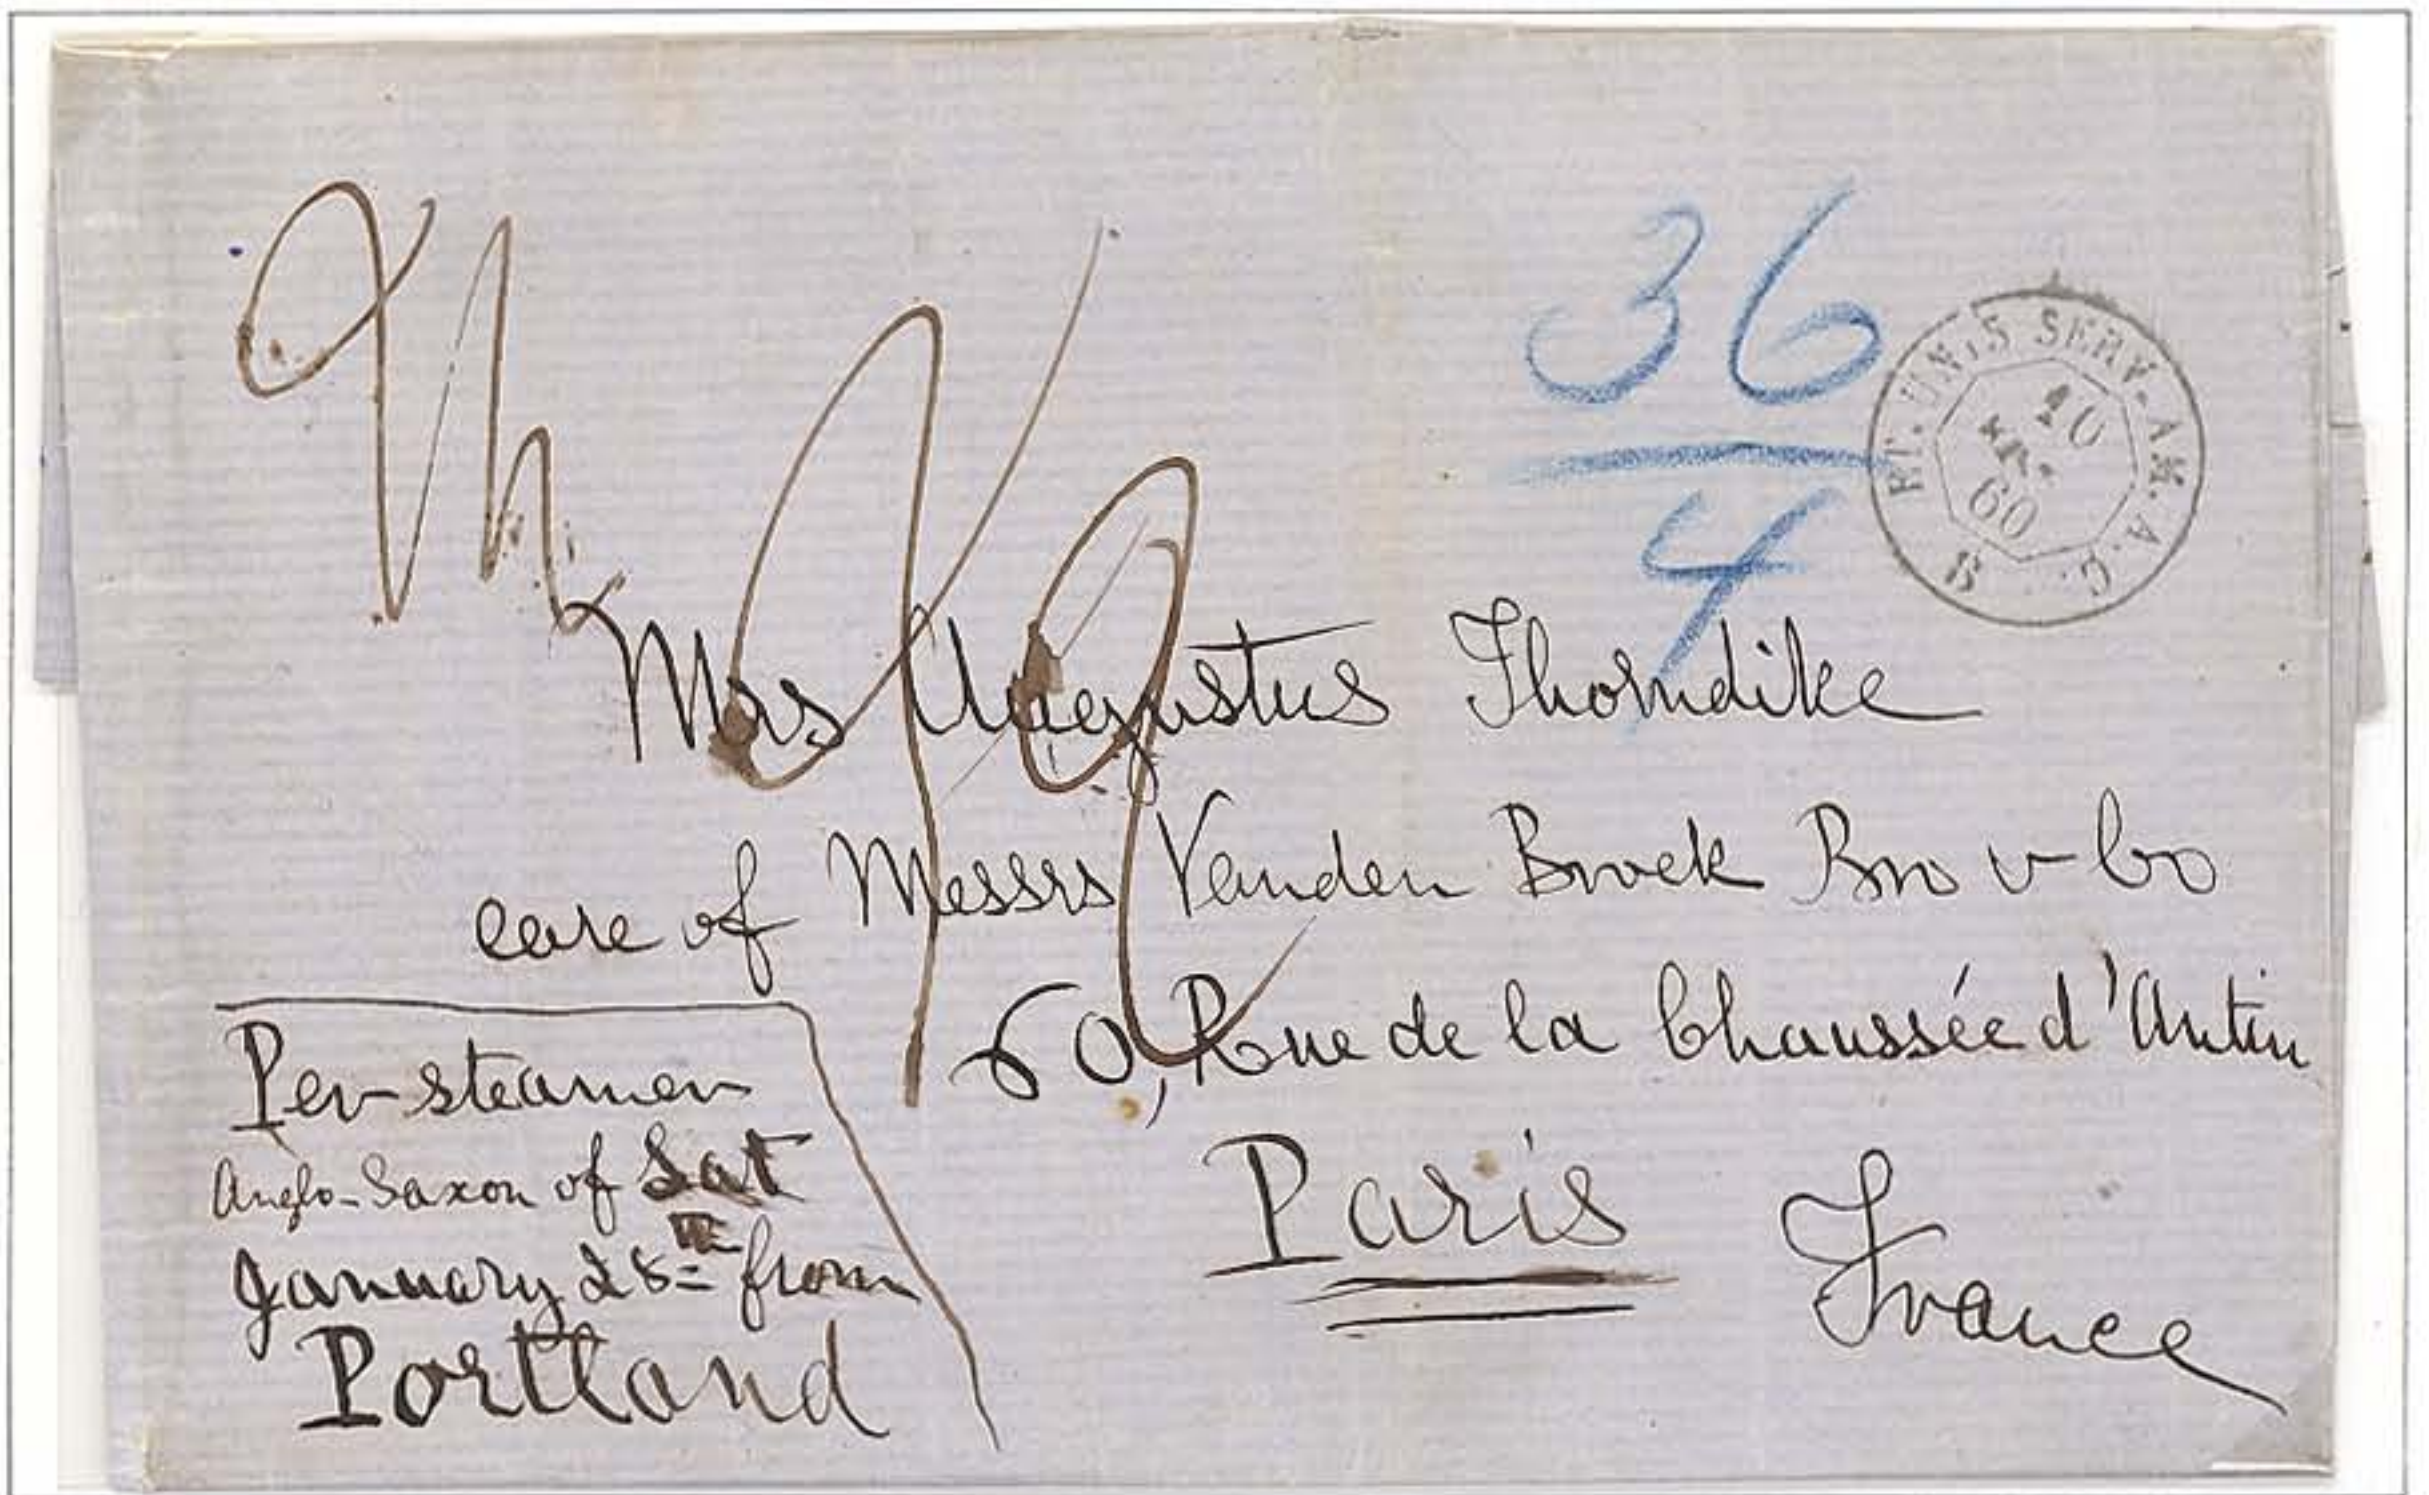 36
4
ET. UN. 5 SERV. AM. A. C.
10
60
Mrs Augustus Thorndike
care of Messrs Vanden Broek Bro & Co
60, Rue de la Chaussée d'Antin
Paris
France
Per steamer
Anglo-Saxon of Sat
January 28th from
Portland